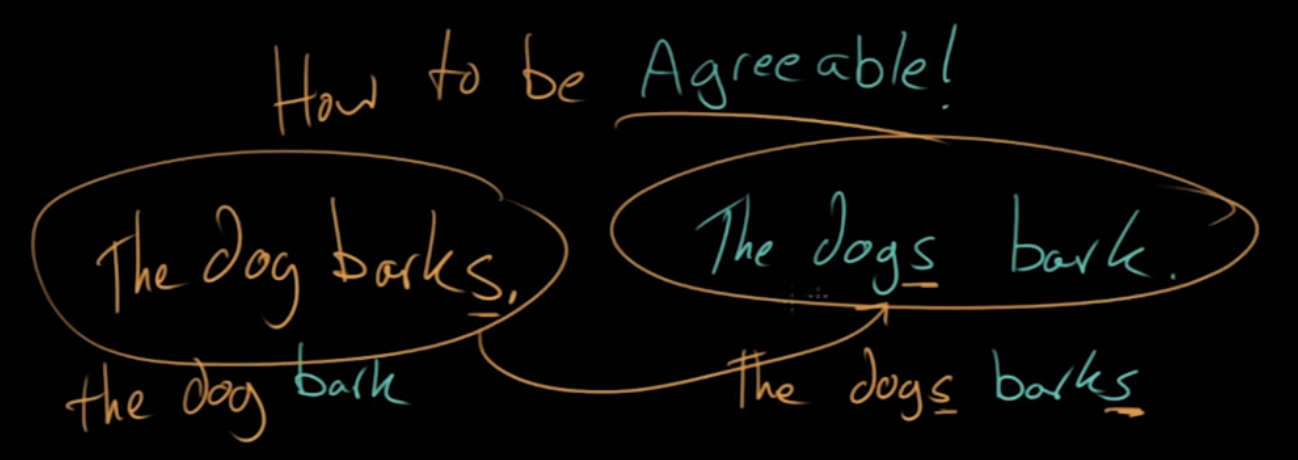 How to be Agreeable!
The dog barks. The dogs bark.
the dog bark The dogs barks